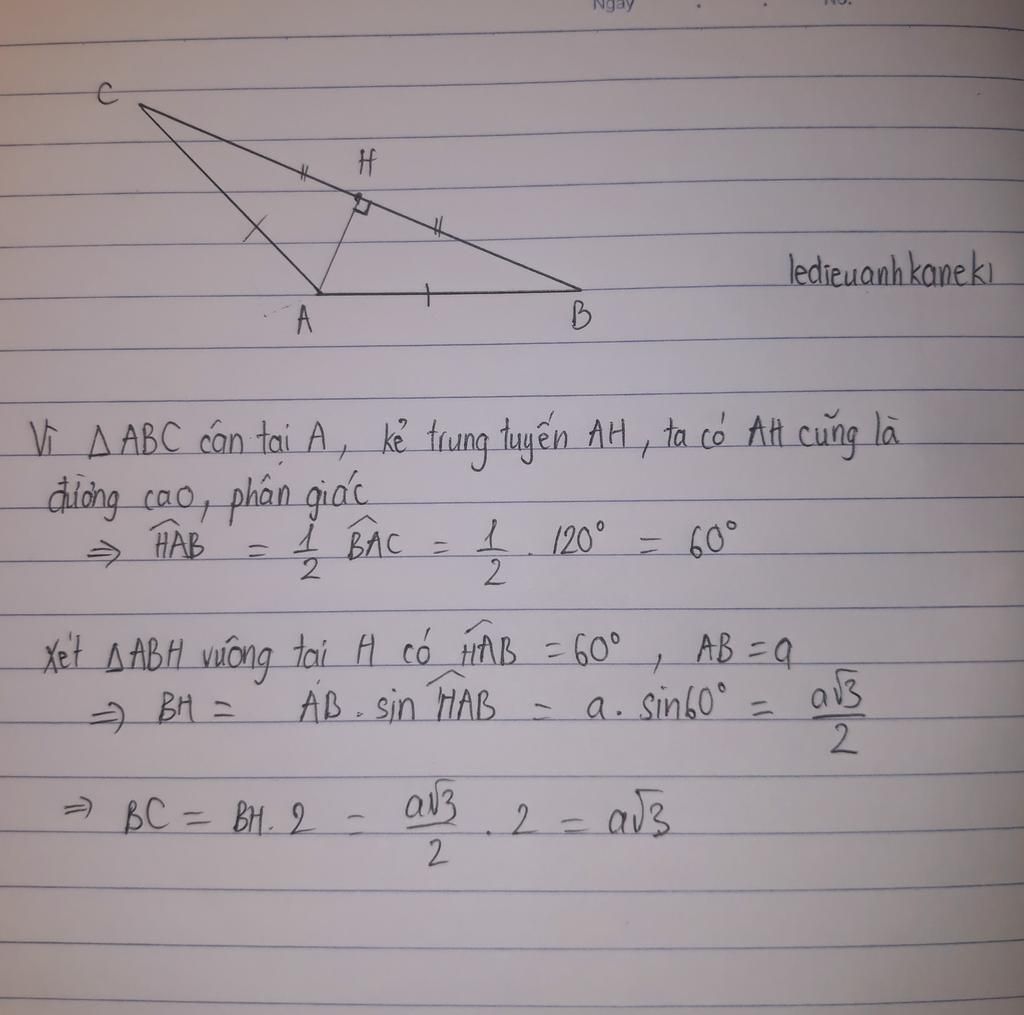 Ngày . . No.
C
H
ledieuanhkaneki
A
B
Vì ΔABC cân tại A, kẻ trung tuyến AH, ta có AH cũng là
đường cao, phân giác
⇒ \widehat{HAB} = 1/2 \widehat{BAC} = 1/2 . 120° = 60°
Xét ΔABH vuông tại H có \widehat{HAB} = 60°, AB = a
⇒ BH = AB . sin \widehat{HAB} = a. sin60° = a√3/2
⇒ BC = BH. 2 = a√3/2 . 2 = a√3